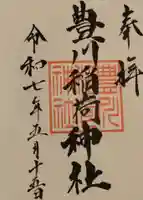 奉拝
豊川稲荷神社
令和七年五月十五日